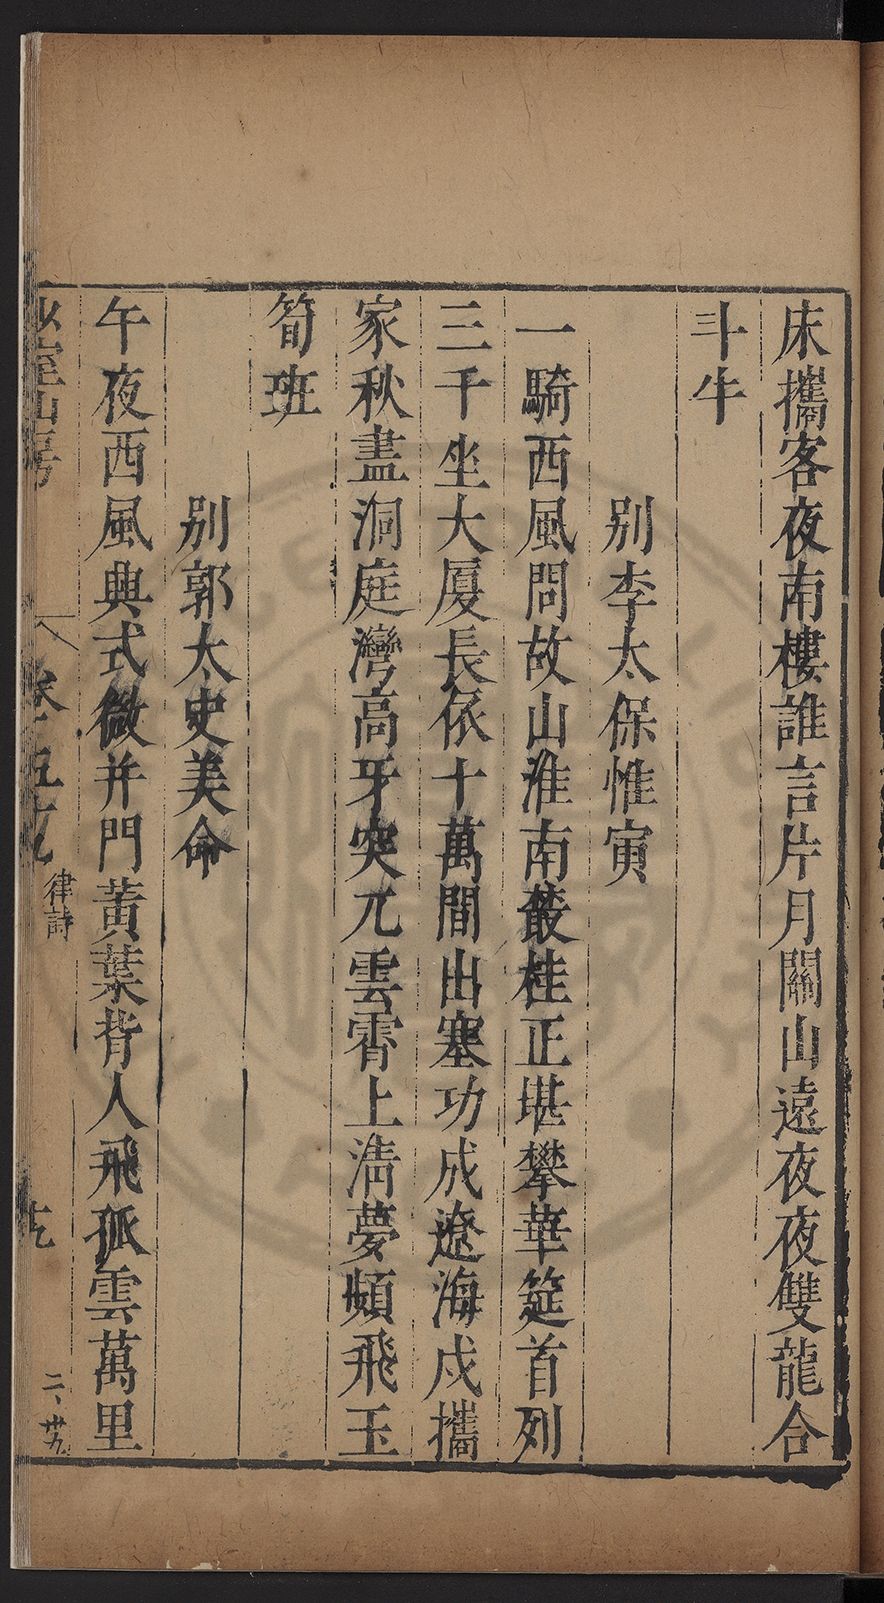 床攜客夜南樓誰言片月關山遠夜夜雙龍合
斗牛
別李太保惟寅
一騎西風問故山淮南叢桂正堪攀華筵首列
三千坐大厦長依十萬間出塞功成遼海戍攜
家秋盡洞庭灣高牙突兀雲霄上清夢頻飛玉
筍班
別郭太史美命
午夜西風典式微并門黃葉背人飛孤雲萬里
室山房
律詩
二、卅九